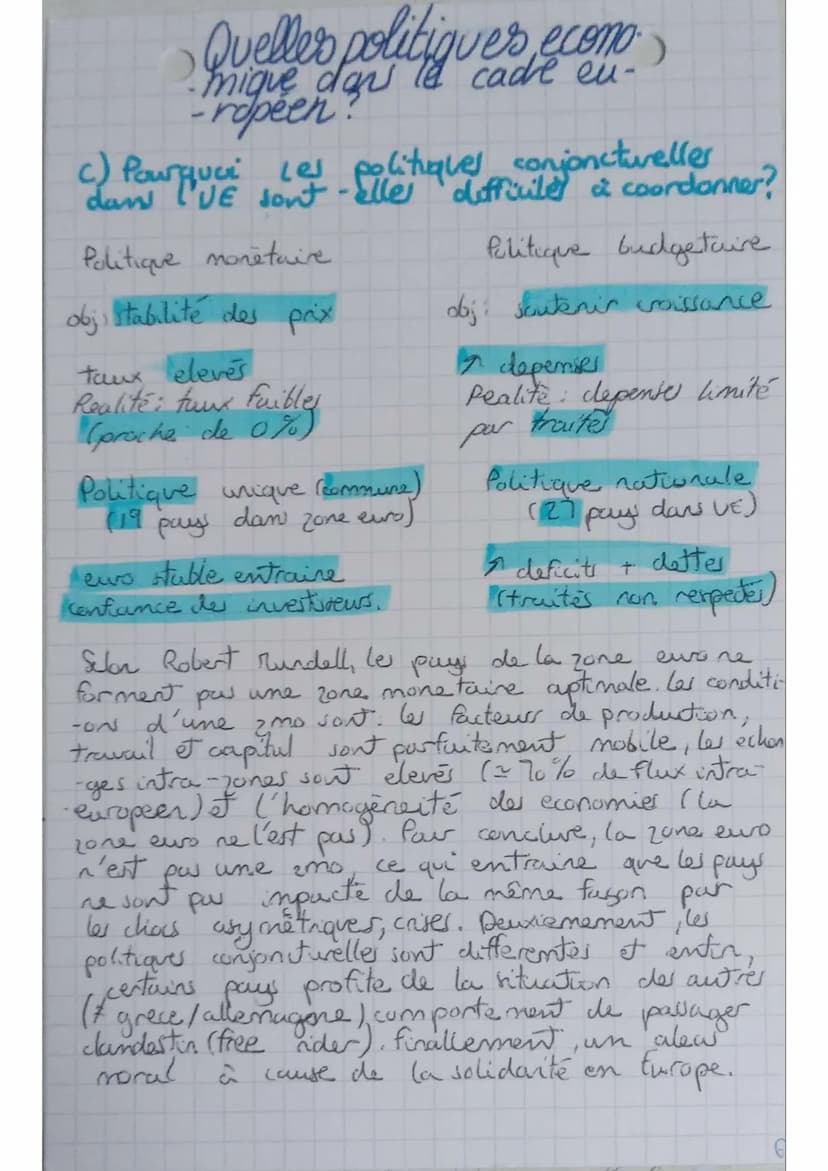 Quelles politiques econo-
-mique dans le cadre eu-
-ropéen?
c) Pourquoi les politiques conjoncturelles
dans l'UE sont-elles difficiles à coordonner?
Politique monétaire
Politique budgetaire
obj: stabilité des prix
obj: soutenir croissance
taux elevés
↗ depenses
Realité: taux faibles
(proche de 0%)
Realité: depenses limité
par traités
Politique unique (commune)
(19 pays dans zone euro)
Politique nationale
(27 pays dans UE)
euro stable entraine
confiance des investisseurs.
↗ deficits + dettes
(traités non respectés)
Selon Robert Mundell, les pays de la zone euro ne
forment pas une zone monetaire optimale. Les conditi-
-ons d'une zmo sont: les facteurs de production,
travail et capital sont parfaitement mobile, les echan
-ges intra-zones sont elevés (≃ 70% de flux intra-
-europeen) et l'homogèneité des economies (la
zone euro ne l'est pas). Pour conclure, la zone euro
n'est pas une zmo, ce qui entraine que les pays
ne sont pas impacté de la même façon par
les chocs asymétriques, crises. Deuxiemement, les
politiques conjoncturelles sont differentes et enfin,
certains pays profite de la situation des autres
(≠ grece/allemagne) comportement de passager
clandestin (free rider). finallement, un alea
moral à cause de la solidarité en Europe.
6